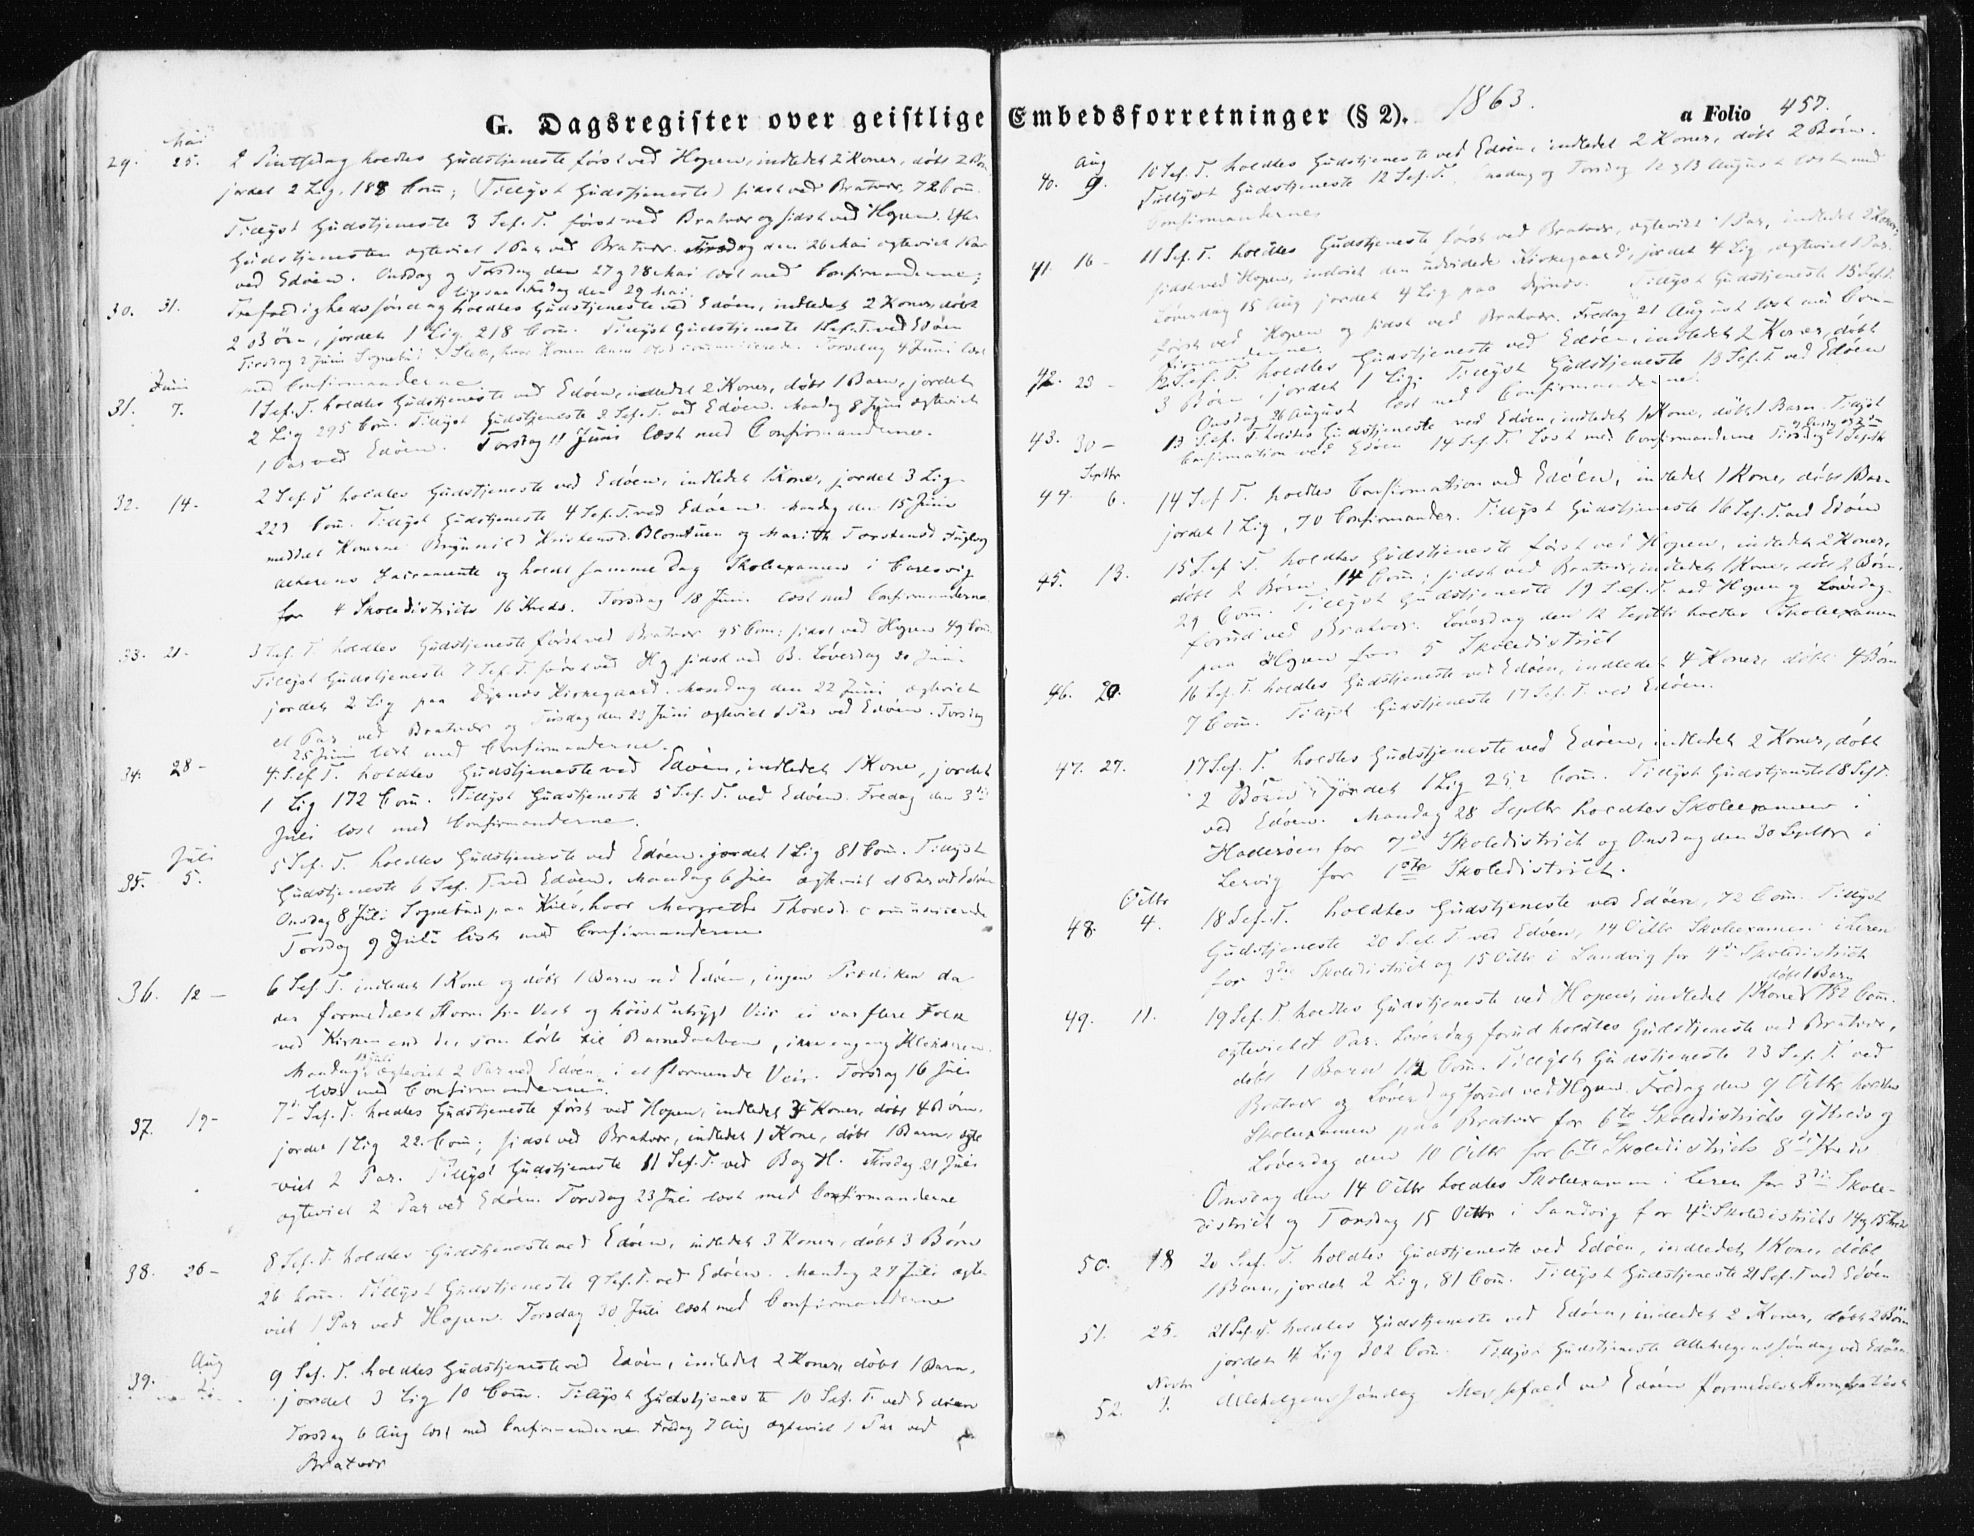 G. Dagsregister over geistlige Embedsforretninger (§ 2). 1863. a Folio 457.
Mai
29. 25. 2 Pintsedag holdtes Gudstjeneste først ved Hopen, indledet 2 Koner, døbt 2 Børn
jordet 2 Lig, 188 Com; (Tillyst Gudstjeneste) sidst ved Bratvær, 72 Com.
Tillyst Gudstjeneste 3 S.ef.T. først ved Bratvær og sidst ved Hopen. Efter
Gudstjenesten ægteviet 1 Par ved Bratvær. Tirsdag den 26 Mai ægteviet 1 Par
ved Edøen. Onsdag og Torsdag den 27 og 28 Mai læst med Confirmanderne;
ligesaa Fredag den 29 Mai
30. 31. Trefoldighedssøndag holdtes Gudstjeneste ved Edøen, indledet 2 Koner, døbt
2 Børn, jordet 1 Lig, 218 Com. Tillyst Gudstjeneste 1 S.ef.T. ved Edøen
Tirsdag 2 Juni Sognebud hvor Konen Anne communicerede. Torsdag 4 Juni læst
med Confirmanderne
Juni
31. 7. 1 S.ef.T. holdtes Gudstjeneste ved Edøen, indledet 2 Koner, døbt 1 Barn, jordet
2 Lig 295 Com. Tillyst Gudstjeneste 2 S.ef.T. ved Edøen. Mandag 8 Juni ægteviet
1 Par ved Edøen. Torsdag 11 Juni læst med Confirmanderne.
32. 14. 2 S.ef.T. holdtes Gudstjeneste ved Edøen, indledet 1 Kone, jordet 3 Lig
223 Com. Tillyst Gudstjeneste 4 S.ef.T. ved Edøen. Mandag den 15 Juni
meddelt Konerne Brynnild Kristensd. og Marith Torstensd.
Alterens Sacramente og holdt samme Dag Skoleexamen i
for 4 Skoledistricts 16 Kreds. Torsdag 18 Juni læst med Confirmanderne
33. 21. 3 S.ef.T. holdtes Gudstjeneste først ved Bratvær 95 Com; sidst ved Hopen 49 Com.
Tillyst Gudstjeneste 7 S.ef.T. først ved H og sidst ved B. Løverdag 20 Juni
jordet 2 Lig paa Kirkegaard. Mandag den 22 Juni ægteviet
et Par ved Bratvær og Tirsdag den 23 Juni ægteviet 1 Par ved Edøen. Torsdag
25 Juni læst med Confirmanderne.
34. 28 – 4. S.ef.T. holdtes Gudstjeneste ved Edøen, indledet 1 Kone, jordet
1 Lig 172 Com. Tillyst Gudstjeneste 5 S.ef.T. ved Edøen. Fredag den 3die
Juli læst med Confirmanderne.
Juli
35. 5. 5 S.ef.T. holdtes Gudstjeneste ved Edøen. jordet 1 Lig 81 Com. Tillyst
Gudstjeneste 6 S.ef.T. ved Edøen. Mandag 6 Juli ægteviet et Par ved Edøen
Onsdag 8 Juli Sognebud paa hvor Margrethe communicerede
Torsdag 9 Juli læst med Confirmanderne
36. 12 – 6 S.ef.T. indledet 1 Kone og døbt 1 Barn ved Edøen, ingen Prædiken da
der formedelst Storm fra Vest og høist utrygt Veir ei var flere Folk
ved Kirken end de, som hørte til Barnedaaben, ikke engang Klokkeren.
Mandag 13 Juli ægteviet 2 Par ved Edøen i et stormende Veir. Torsdag 16 Juli
læst med Confirmanderne.
37. 19 – 7 S.ef.T. holdtes Gudstjeneste først ved Hopen, indledet 4 Koner, døbt 4 Børn,
jordet 1 Lig 22 Com; sidst ved Bratvær, indledet 1 Kone, døbt 1 Barn, ægte
viet 2 Par. Tillyst Gudstjeneste 11 S.ef.T. ved B og H. Tirsdag 21 Juli
ægteviet 2 Par ved Edøen. Torsdag 23 Juli læst med Confirmanderne
38. 26 – 8 S.ef.T. holdtes Gudstjeneste ved Edøen, indledet 3 Koner, døbt 3 Børn
26 Com. Tillyst Gudstjeneste 9 S.ef.T. ved Edøen. Mandag 27 Juli ægte
viet 1 Par ved Hopen. Torsdag 30 Juli læst med Confirmanderne
Aug
39. 2. 9 S.ef.T. holdtes Gudstjeneste ved Edøen, indledet 2 Koner, døbt 1 Barn,
jordet 3 Lig 10 Com. Tillyst Gudstjeneste 10 S.ef.T. ved Edøen
Torsdag 6 Aug læst med Confirmanderne Fredag 7 Aug ægteviet 1 Par ved
Bratvær
Aug
40. 9. 10 S.ef.T. holdtes Gudstjeneste ved Edøen, indledet 2 Koner, døbt 2 Børn.
Tillyst Gudstjeneste 12 S.ef.T. Onsdag og Torsdag 12 og 13 August læst med
Confirmanderne
41. 16 – 11 S.ef.T. holdtes Gudstjeneste først ved Bratvær, ægteviet 1 Par, indledet 2 Koner,
sidst ved Hopen, indviet den udvidede Kirkegaard, jordet 4 Lig, ægteviet 1 Par.
Løverdag 15 Aug jordet 4 Lig paa Tillyst Gudstjeneste 15 S.ef.T.
først ved Hopen og sidst ved Bratvær. Fredag 21 August læst med Con-
firmanderne
42. 23 – 12 S.ef.T. holdtes Gudstjeneste ved Edøen, indledet 2 Koner, døbt
3 Børn, jordet 1 Lig. Tillyst Gudstjeneste 13 S.ef.T. ved Edøen
Onsdag 26 August læst med Confirmanderne.
43. 30 – 13 S.ef.T. holdtes Gudstjeneste ved Edøen, indledet 1 Kone, døbt 1 Barn. Tillyst
Confirmation ved Edøen 14 S.ef.T. Læst med Confirmanderne Tirsdag 1 Septbr
Septbr
44. 6. 14 S.ef.T. holdtes Confirmation ved Edøen, indledet 1 Kone, døbt 1 Barn
jordet 1 Lig, 70 Confirmander. Tillyst Gudstjeneste 16 S.ef.T. ved Edøen
45. 13. 15 S.ef.T. holdtes Gudstjeneste først ved Hopen, indledet 2 Koner,
døbt 2 Børn, 14 Com; sidst ved Bratvær, indledet 1 Kone, døbt 2 Børn,
29 Com. Tillyst Gudstjeneste 19 S.ef.T. ved Hopen og Løverdag
forud ved Bratvær. Løverdag den 12 Septbr holdtes Skoleexamen
paa Hopen for 5 Skoledistrict
46. 20. 16 S.ef.T. holdtes Gudstjeneste ved Edøen, indledet 4 Koner, døbt 4 Børn
7 Com. Tillyst Gudstjeneste 17 S.ef.T. ved Edøen.
47. 27. 17 S.ef.T. holdtes Gudstjeneste ved Edøen, indledet 2 Koner, døbt
2 Børn, jordet 1 Lig 252 Com. Tillyst Gudstjeneste 18 S.ef.T.
ved Edøen. Mandag 28 Septbr holdtes Skoleexamen i
for 7de Skoledistrict og Onsdag den 30 Septbr i
Lesvig for 1ste Skoledistrict.
Octbr
48. 4. 18 S.ef.T. holdtes Gudstjeneste ved Edøen, 72 Com. Tillyst
Gudstjeneste 20 S.ef.T. ved Edøen, 14 Octbr Skoleexamen i Leren
for 3die Skoledistrict og 15 Octbr i Sandvig for 4de Skoledistrict
døbt 1 Barn
49. 11. 19 S.ef.T. holdtes Gudstjeneste ved Hopen, indledet 1 Kone 152 Com.
ægteviet et Par. Løverdag forud holdtes Gudstjeneste ved Bratvær,
døbt 1 Barn 112 Com. Tillyst Gudstjeneste 23 S.ef.T. ved
Bratvær og Løverdag forud ved Hopen. Fredag den 9 Octbr holdtes
Skoleexamen paa Bratvær for 6te Skoledistricts 9 Kreds og
Løverdag den 10 Octbr for 6te Skoledistricts 8de Kreds
Onsdag den 14 Octbr holdtes Skoleexamen i Leren for 3die Skole-
district og Torsdag 15 Octbr i Sandvig for 4de Skoledistricts 14 og 15 Kreds
50. 18 20 S.ef.T. holdtes Gudstjeneste ved Edøen, indledet 1 Kone, døbt
1 Barn, jordet 2 Lig, 81 Com. Tillyst Gudstjeneste 21 S.ef.T. ved Edøen
51. 25. 21 S.ef.T. holdtes Gudstjeneste ved Edøen, indledet 2 Koner, døbt 2 Børn
jordet 4 Lig 302 Com. Tillyst Gudstjeneste Allehelgenssøndag ved Edøen
Novbr
52. 1. Allehelgenssøndag Messefald ved Edøen formedelst Storm fra Vest